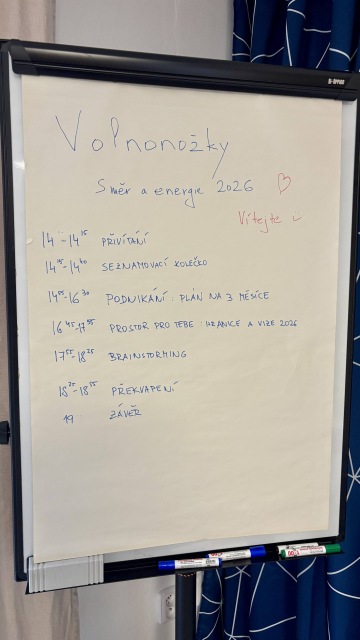 Volnonožky
Směr a energie 2026 ♡
Vítejte :
14 - 14¹⁵ PŘIVÍTÁNÍ
14¹⁵-14⁴⁰ SEZNAMOVACÍ KOLEČKO
14⁵⁵-16³⁰ PODNIKÁNÍ : PLÁN NA 3 MĚSÍCE
16⁴⁵-17⁵⁵ PROSTOR PRO TEBE : HRANICE A VIZE 2026
17⁵⁵-18²⁵ BRAINSTORMING
18²⁵-18⁵⁵ PŘEKVAPENÍ
19 ZÁVĚR